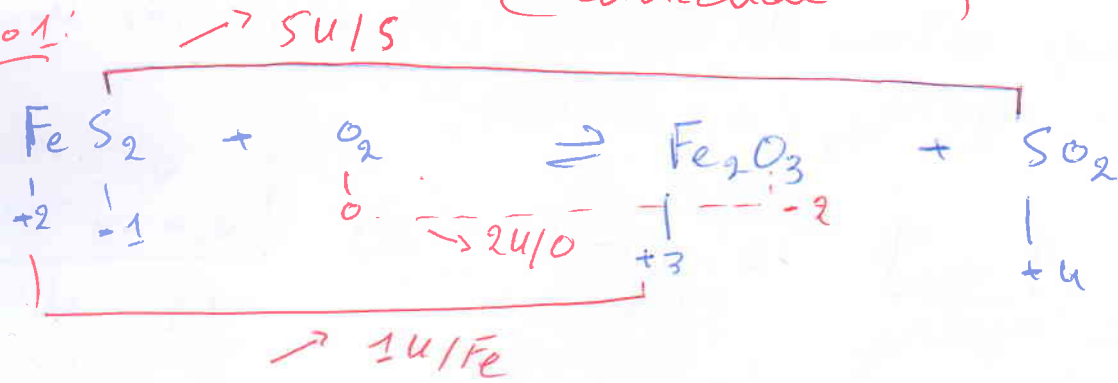 o1:
↗ 5u/S
FeS₂ + O₂ ⇌ Fe₂O₃ + SO₂
+2 -1 0 -2
↘ 2u/O
+3 +4
↗ 1u/Fe